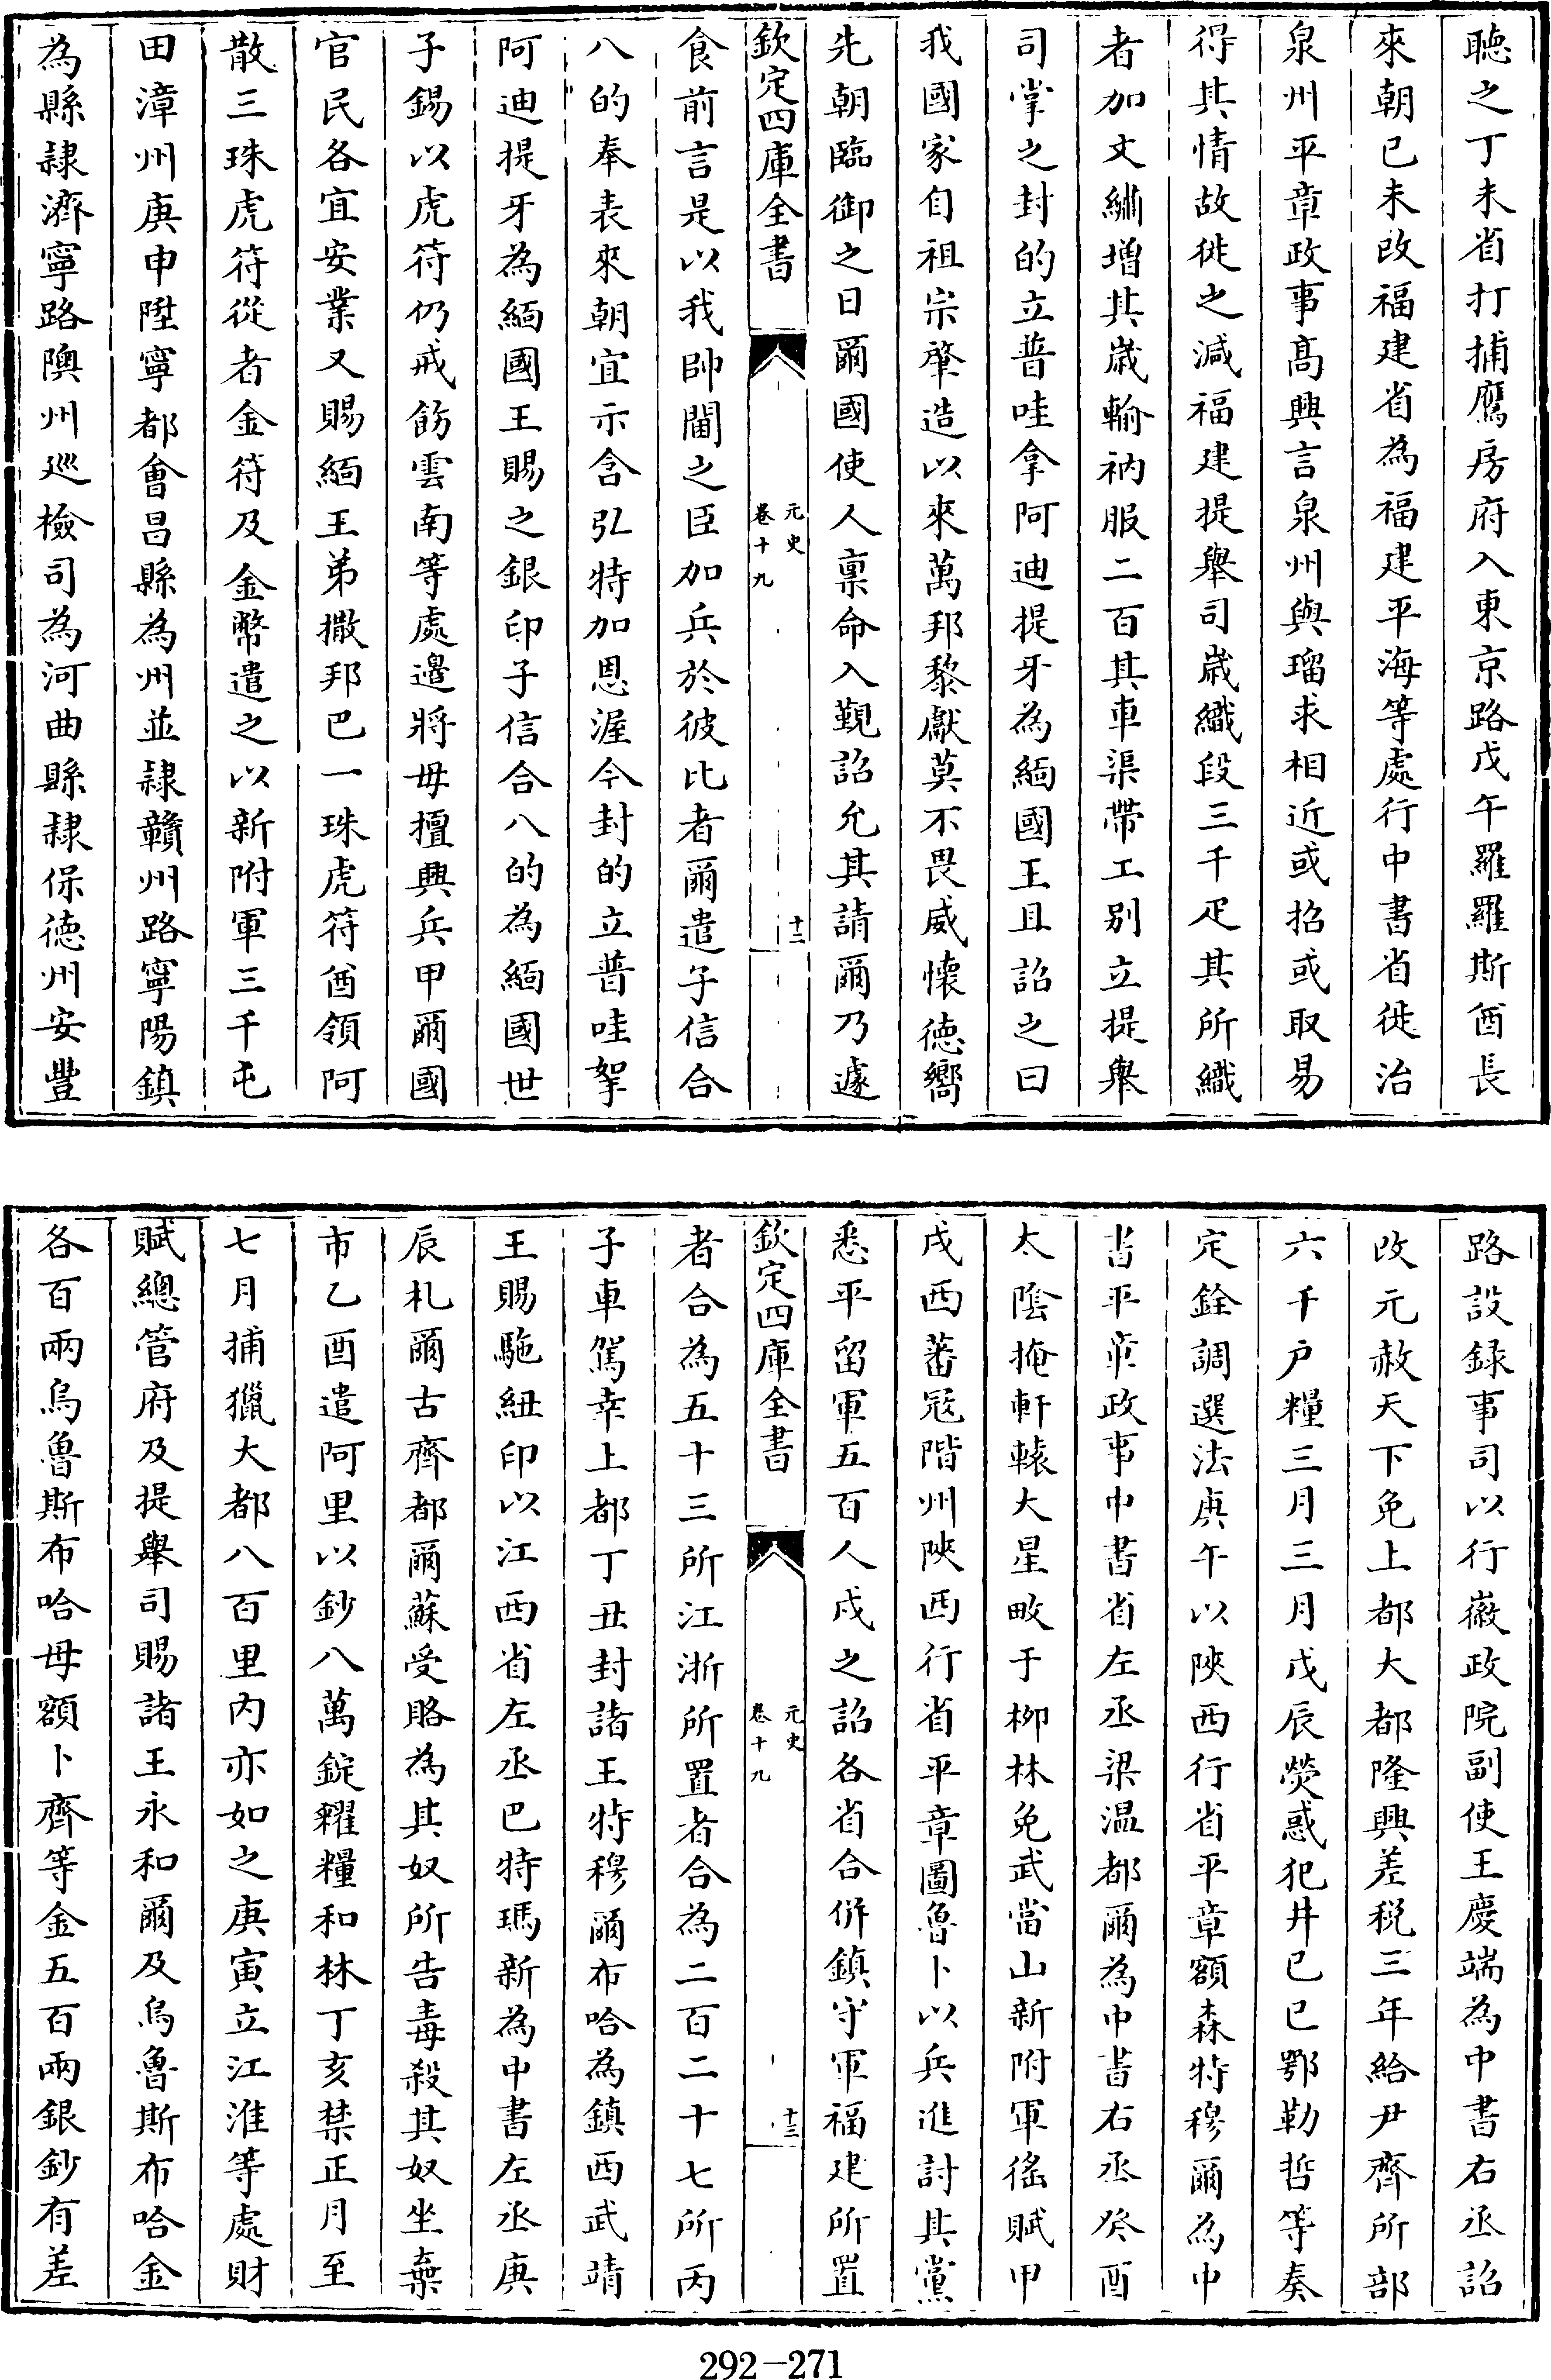 聴之丁未省打捕鷹房府入東京路戊午羅羅斯酋長
來朝已未改福建省為福建平海等處行中書省徙治
泉州平章政事髙興言泉州與瑠求相近或招或取易
得其情故徙之減福建提舉司歲織段三千疋其所織
者加文繡增其歲輸衲服二百其車渠帶工别立提舉
司掌之封的立普哇拿阿迪提牙為緬國王且詔之曰
我國家自祖宗肇造以來萬邦黎獻莫不畏威懷德嚮
先朝臨御之日爾國使人禀命入覲詔允其請爾乃遽
欽定四庫全書
元史
卷十九
十二
食前言是以我帥閫之臣加兵於彼比者爾遣子信合
八的奉表來朝宜示含弘特加恩渥今封的立普哇拏
阿迪提牙為緬國王賜之銀印子信合八的為緬國世
子錫以虎符仍戒飭雲南等處邊將毋擅興兵甲爾國
官民各宜安業又賜緬王弟撒邦巴一珠虎符酋領阿
散三珠虎符從者金符及金幣遣之以新附軍三千屯
田漳州庚申陞寧都㑹昌縣為州並隷贛州路寧陽鎮
為縣隷濟寧路隩州巡檢司為河曲縣隷保德州安豐
路設録事司以行徽政院副使王慶端為中書右丞詔
改元赦天下免上都大都隆興差税三年給尹齊所部
六千户糧三月三月戊辰熒惑犯井已巳鄂勒哲等奏
定銓調選法庚午以陜西行省平章額森特穆爾為中
書平章政事中書省左丞梁温都爾為中書右丞癸酉
太隂掩軒轅大星畋于柳林免武當山新附軍徭賦甲
戌西蕃冦階州陜西行省平章圖魯卜以兵進討其黨
悉平留軍五百人戍之詔各省合併鎮守軍福建所置
欽定四庫全書
元史
卷十九
十三
者合為五十三所江浙所置者合為二百二十七所丙
子車駕幸上都丁丑封諸王特穆爾布哈為鎮西武靖
王賜駞紐印以江西省左丞巴特瑪新為中書左丞庚
辰札爾古齊都爾蘇受賂為其奴所告毒殺其奴坐棄
市乙酉遣阿里以鈔八萬錠糴糧和林丁亥禁正月至
七月捕獵大都八百里内亦如之庚寅立江淮等處財
賦總管府及提舉司賜諸王永和爾及烏魯斯布哈金
各百兩烏魯斯布哈毋額卜齊等金五百兩銀鈔有差
292-271